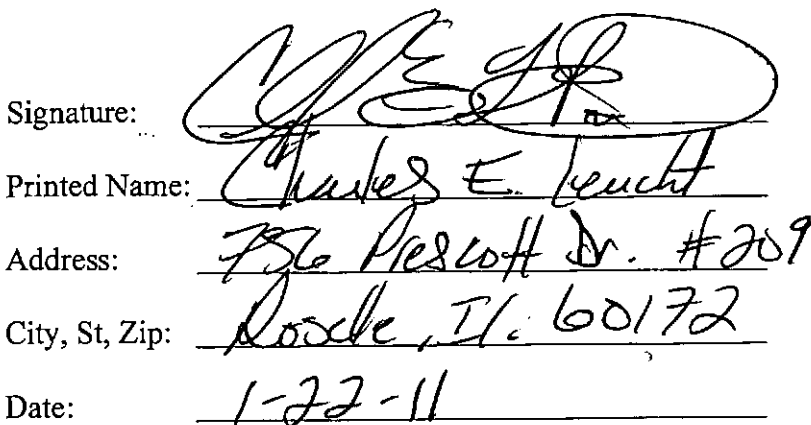 Signature:
Printed Name: Charles E. Leucht
Address: 756 Prescott Dr. #209
City, St, Zip: Roselle, Il. 60172
Date: 1-22-11